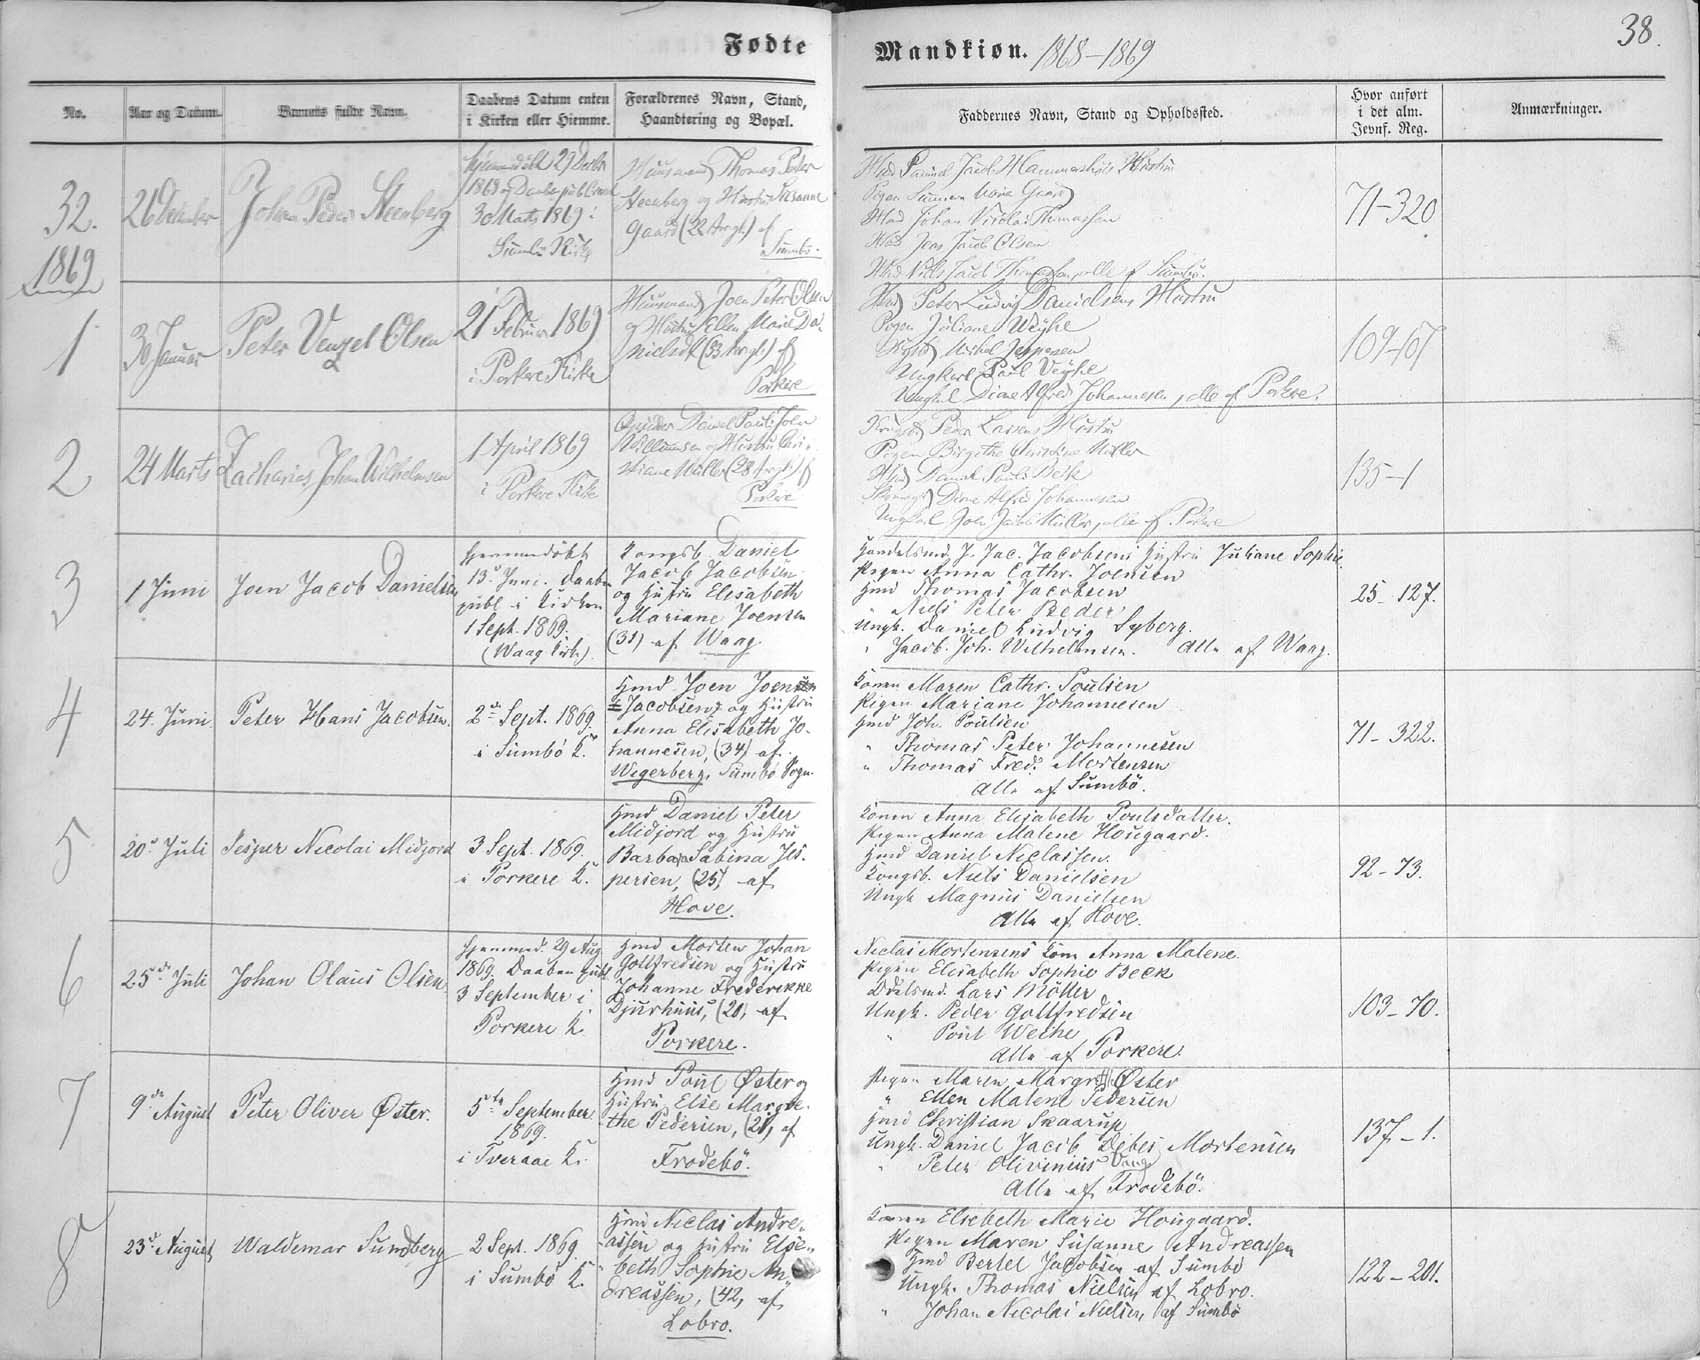 Fødte
Mandkiøn. 1868-1869
38.
No.
Aar og Datum.
Barnets fulde Navn.
Daabens Datum enten
i Kirken eller Hiemme.
Forældrenes Navn, Stand,
Haandtering og Bopæl.
Faddernes Navn, Stand og Opholdssted.
Hvor anført
i det alm.
Jevnf. Reg.
Anmærkninger.
32.
26 December
Johan Peder Steenberg
Hjemmedøbt 29 Decbr
1868 og Daaben publiceret
30 Marts 1869 i
Sumbø Kirke
Huusmand Thomas Peter
Steenberg og Hustru Susanne
Gaard (22 Aar gl.) af
Sumbø.
Jacob Hammershaibs Hustru
Pigen
Hmd Johan Nicolai Thomassen
Hmd Jens Jacob Olsen
Hmd Niels Jacob Thomassen, alle af Sumbø.
71-320
1869
1
30 Januar
Peter Venzel Olsen
21 Februar 1869
i Porkere Kirke
Huusmand Joen Peter Olsen
og Hustru Ellen Marie Da-
nielsdt (33 Aar gl.) af
Porkere
Hmd Peter Ludvig Danielsens Hustru
Pigen Juliane Weyhe
Jespersen
Ungkarl Poul Veyhe
Ungkl Dione Alfred Johannesen, alle af Porkere.
109-67
2
24 Marts
Zacharias Johan Wilhelmsen
1 April 1869
i Porkere Kirke
Daniel Pauli Joen
Willumsen og Hustru Chri-
stiane Müller (28 Aar gl.) af
Porkere
Peder Larsens Hustru
Pigen Birgithe Christine Müller
Hmd Daniel Pauli Beck
Dione Alfred Johannesen
Ungkarl Joen Jacob Müller, alle af Porkere
135-1
3
1 Juni
Joen Jacob Danielsen
hjemmedöbt
13de Juni. Daaben
publ. i Kirken
1 Sept. 1869.
(Waag Kirke).
Kongsb. Daniel
Jacob Jacobsen
og Hustru Elisabeth
Mariane Joensen
(31) af Waag
Handelsmd. J. Jac. Jacobsens Hustru Juliane Sophie
Pigen Anna Cathr. Joensen
Hmd Thomas Jacobsen
" Niels Peter Peder
Ungk. Daniel Ludvig Lyberg.
" Jacob. Joh. Wilhelmsen. Alle af Waag.
25-127.
4
24. Juni
Peter Hans Jacobsen.
2den Sept. 1869.
i Sumbö K.
Hmd Joen Joensen
Jacobsen og Hustru
Anna Elisabeth Jo-
hannesen, (34) af
Wegerberg, Sumbö Sogn.
Konen Maren Cathr. Poulsen
Pigen Mariane Johannesen
Hmd Joh. Poulsen
" Thomas Peter Johannesen
" Thomas Fred. Mortensen
Alle af Sumbö.
71-322.
5
20de Juli
Jesper Nicolai Midjord
3 Sept. 1869.
i Porkere K.
Hmd Daniel Peter
Midjord og Hustru
Barbara Sabina Jes-
persen, (25) af
Hove.
Konen Anna Elisabeth Poulsdatter.
Pigen Anna Malene Hougaard.
Hmd Daniel Niclassen.
Kongsb. Niels Danielsen
Ungk Magnus Danielsen
Alle af Hove.
92-73.
6
25de Juli
Johan Olaus Olsen
hjemmed. 29 Aug
1869. Daaben publ.
3 September i
Porkere K.
Hmd Morten Johan
Gottfredsen og Hustru
Johanne Frederikke
Djurhuus, (20) af
Porkere.
Niclas Mortensens Kone Anna Malene.
Pigen Elisabeth Sophie Beck
Lars Möller
Ungk. Peder Gottfredsen
" Poul Weihe
Alle af Porkere.
103-70.
7
9de August
Peter Oliver Øster.
5te September
1869.
i Tveraae K.
Hmd Poul Øster og
Hustru Else Margre-
the Pedersen, (21) af
Frodebö.
Pigen Maren Margrethe Øster
" Ellen Malene Pedersen
Hmd Christian Skaarup
Ungk. Daniel Jacob Debes Mortensen
" Peter Olivinius Vang
Alle af Frodebö.
137-1.
8
23de August
Waldemar Sundberg
2 Sept. 1869.
i Sumbö K.
Hmd Niclas Andre-
assen og Hustru Else-
beth Sophie An-
dreassen, (42) af
Lobro.
Konen Elsebeth Marie Hougaard.
Pigen Maren Susanne Andreassen
Hmd Bertel Jacobsen af Sumbö
Ungk. Thomas Nielsen af Lobro.
" Johan Nicolai Nielsen, af Sumbö
122-201.